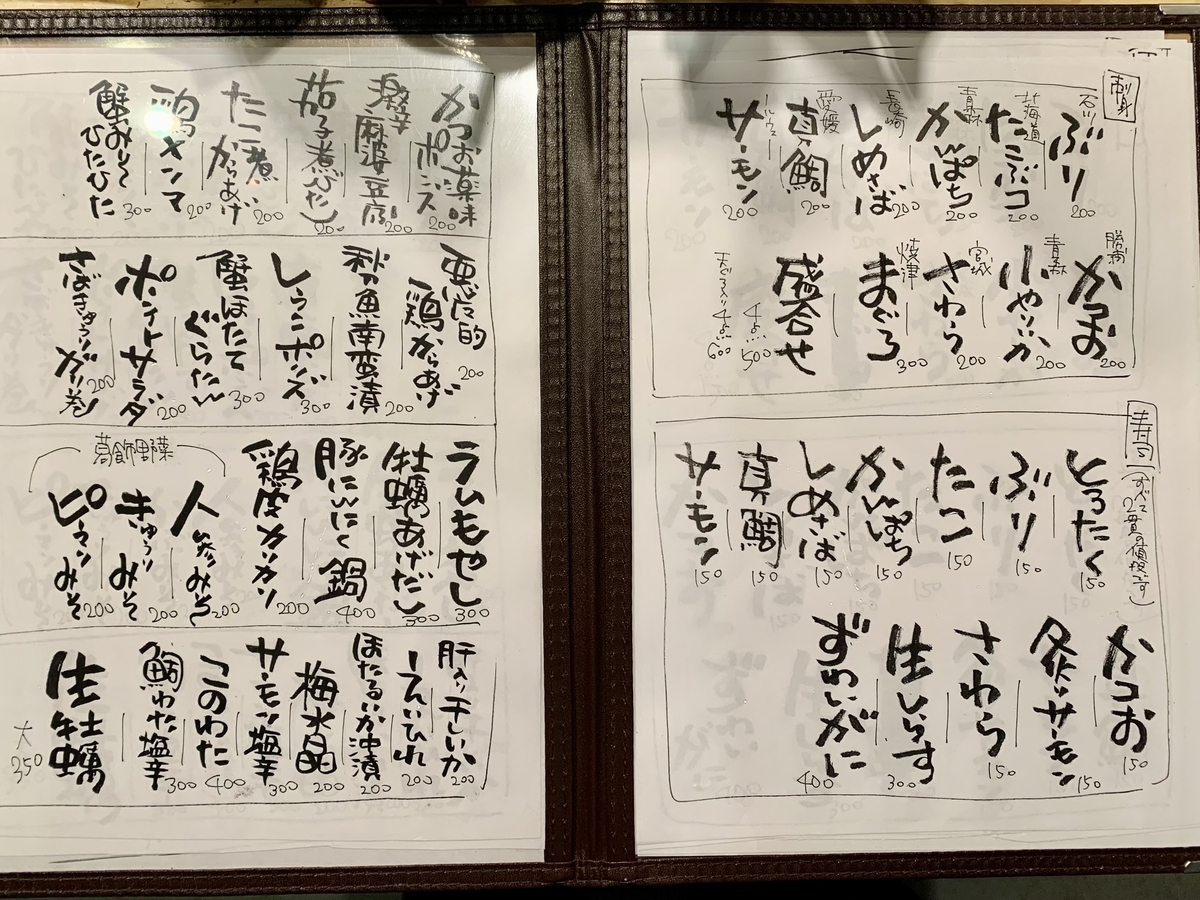 刺身
石川 ぶり 200
北海道 たこぶつ 200
青森 かんぱち 200
長崎 しめさば 200
愛媛 真鯛 200
ノルウェー サーモン 200
勝浦 かつお 200
青森 小やりいか 200
宮城 さわら 200
焼津 まぐろ 300
盛合せ
4点 500
まぐろ入り4点 600
寿司(すべて2貫の値段です)
とろたく 150
ぶり 150
たこ 150
かんぱち 150
しめさば 150
真鯛 150
サーモン 150
かつお 150
炙りサーモン 150
さわら 150
生しらす 300
ずわいがに 400
かつお薬味ポンズ 200
激辛麻婆豆腐 200
茄子煮びたし 200
たこ煮からあげ 200
鶏メンマ 200
蟹みそひたひた 300
悪魔的鶏からあげ 200
秋魚南蛮漬 200
しらこポンズ 300
蟹ほたてぐらたん 300
ポテトサラダ 200
さばきゅうりガリ巻 200
ラムもやし 300
牡蠣あげだし 300
豚にんにく鍋 400
鶏皮カリカリ 200
葛飾野菜
人参みそ 200
きゅうりみそ 200
ピーマンみそ 200
肝入り干しいか 200
えいひれ 200
ほたるいか沖漬 200
梅水晶 200
サーモン塩辛 300
このわた 400
鯛わた塩辛 300
生牡蠣
大 350